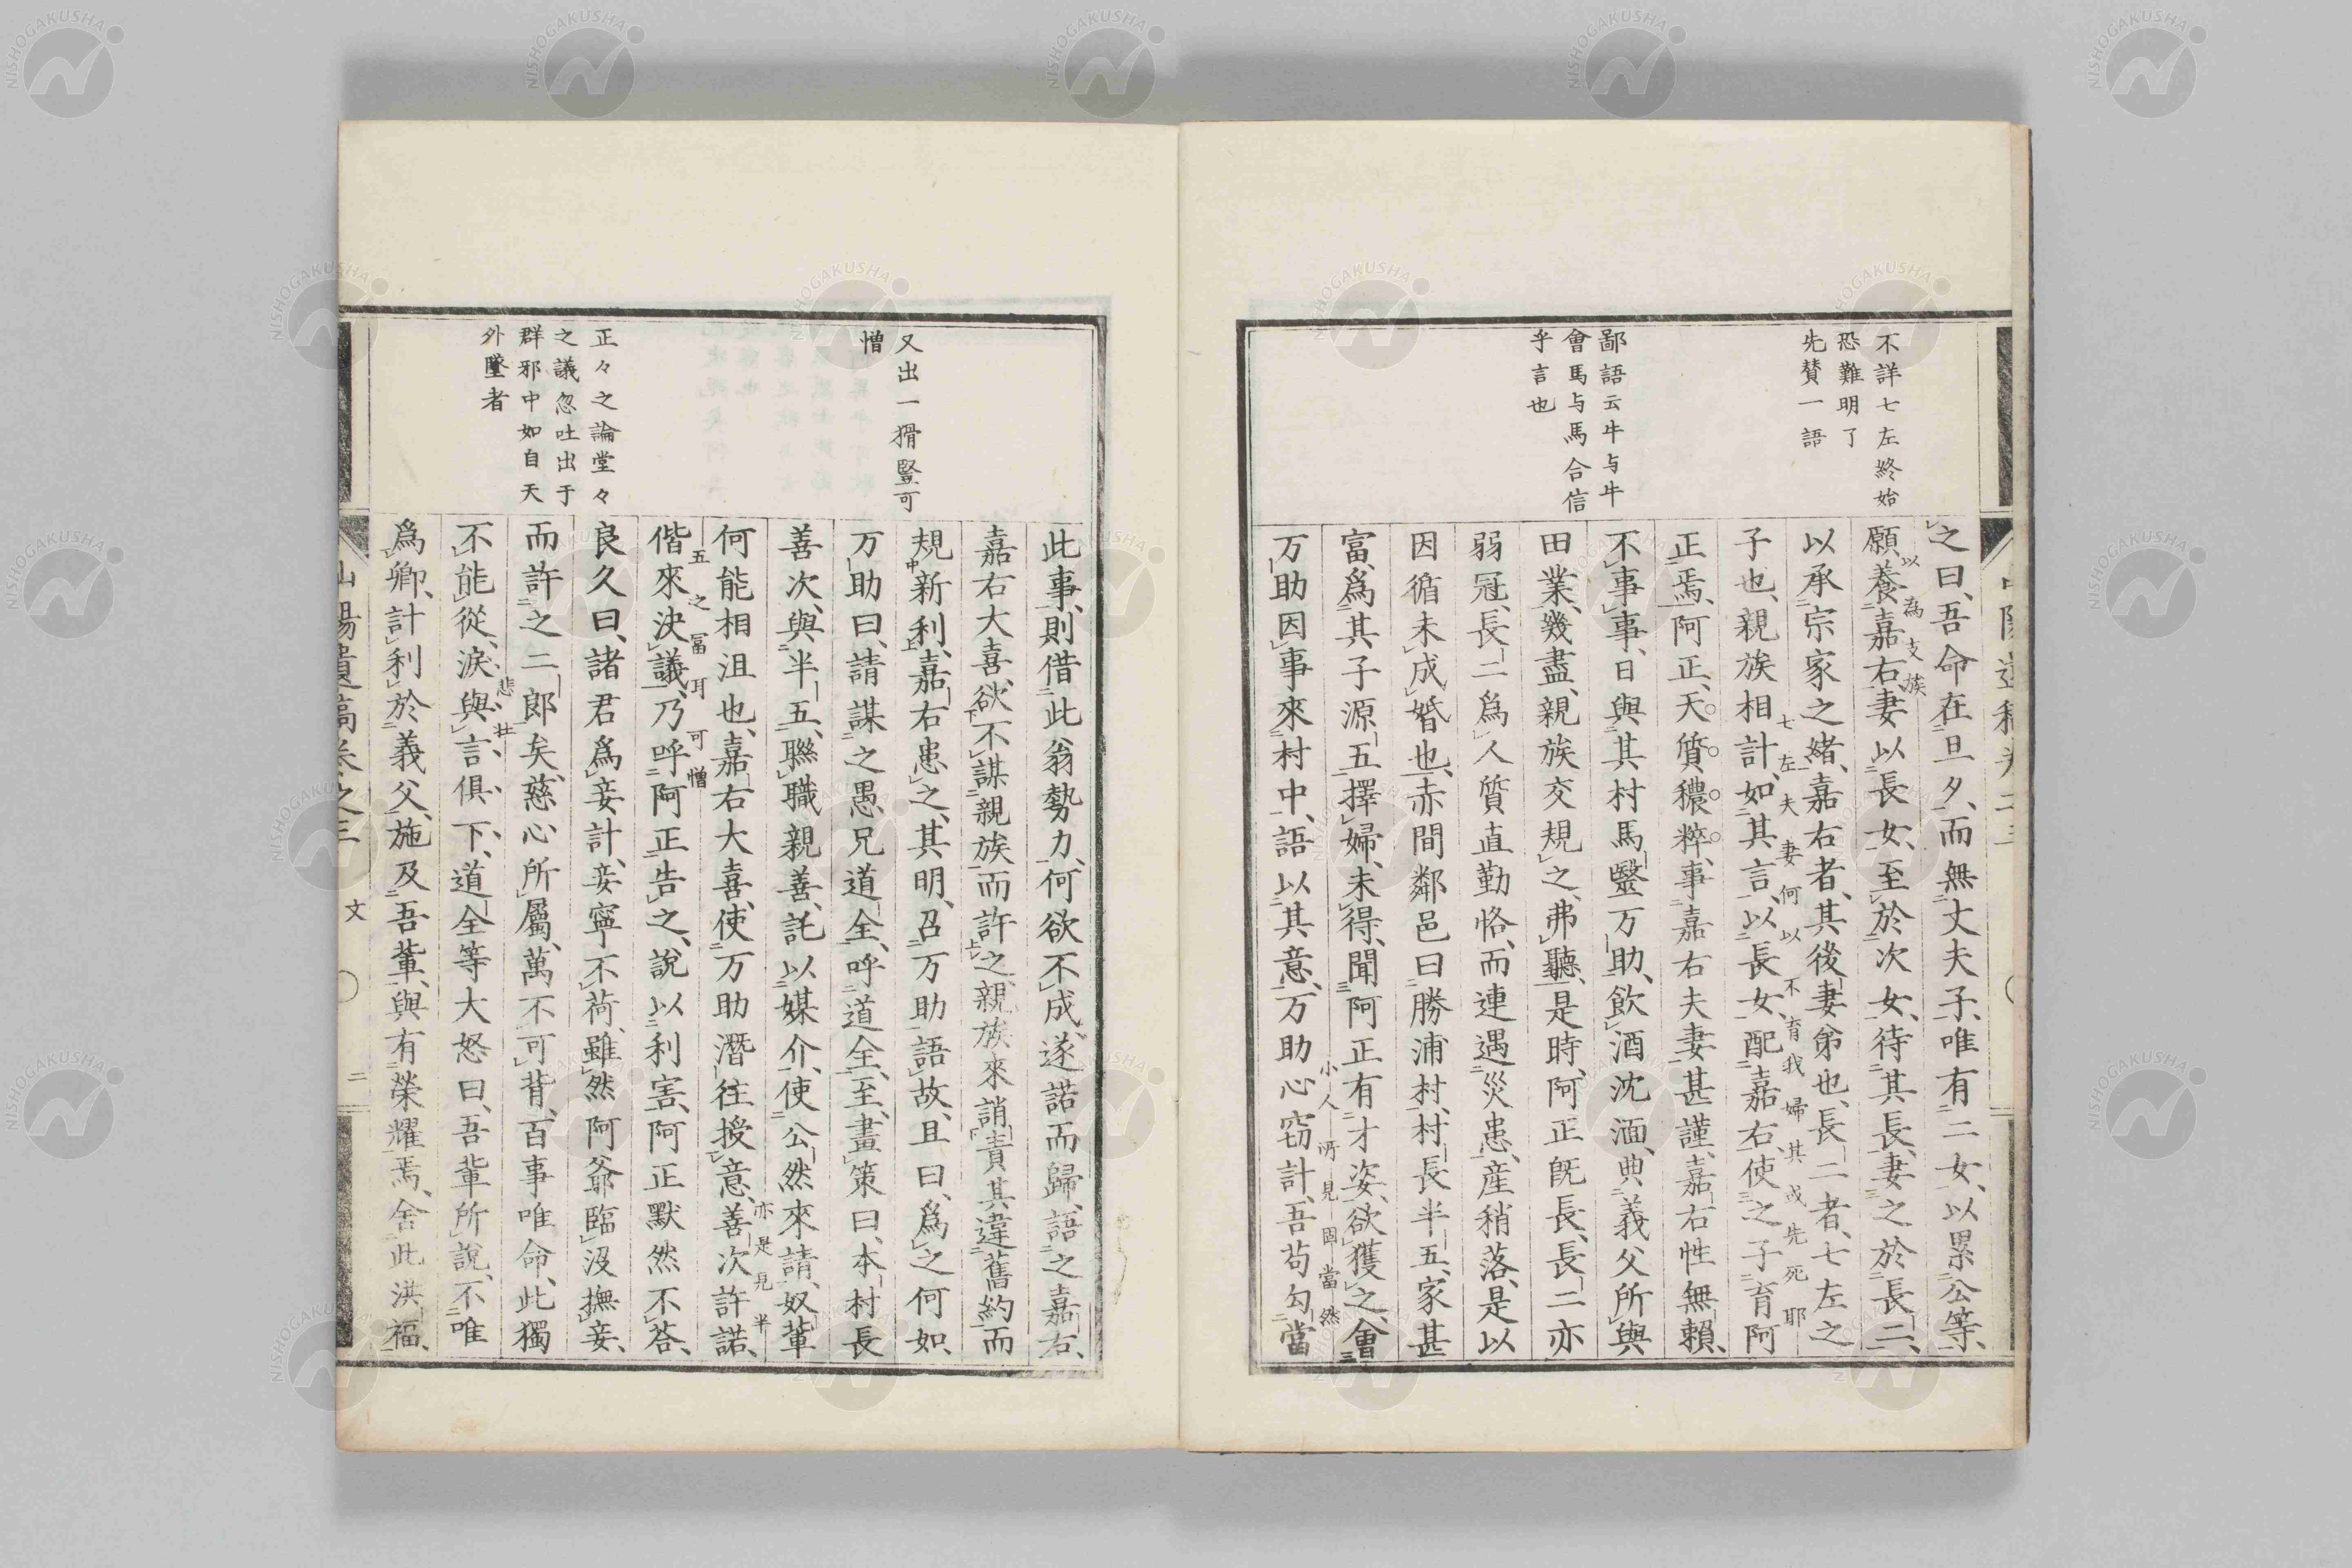 不詳七左終始
恐難明了
先賛一語
鄙語云牛与牛
會馬与馬合信
乎言也
之曰、吾命在旦夕、而無丈夫子、唯有二女、以累公等、
願養嘉右妻以長女、至於次女、待其長、妻之於長二、
以為支族
以承宗家之緒、嘉右者、其後妻弟也、長二者、七左之
子也、親族相計、如其言、以長女、配嘉右、使之子育阿
七左夫妻何以不育我婦其或先死耶
正焉、阿正、天質穠粹、事嘉右夫妻甚謹、嘉右性無賴、
不事事、日與其村馬毉万助、飲酒沈湎、典義父所與
田業、幾盡、親族交規之、弗聽、是時、阿正既長、長二亦
弱冠、長二為人質直勤恪、而連遇災患、産稍落、是以
因循未成婚也、赤間鄰邑曰勝浦村、村長半五、家甚
富、爲其子源五擇婦、未得、聞阿正有才姿、欲獲之、會
小人所見固當然
万助因事來村中、語以其意、万助心窃計、吾苟匃當
又出一猾豎可
憎
正々之論堂々
之議忽吐出于
群邪中如自天
外墜者
此事、則借此翁勢力、何欲不成、遂諾而歸、語之嘉右、
嘉右大喜、欲不謀親族而許之、親族來誚責其違舊約而
規新利、嘉右患之、其明、召万助語故、且曰、爲之何如、
万助曰、請謀之愚兄道全、呼道全、至、畫策曰、本村長
善次、與半五、聯職親善、託以媒介、使公然來請、奴輩
何能相沮也、嘉右大喜、使万助潛往授意、善次許諾、
亦是見半五之富耳可憎
偕來決議、乃呼阿正告之、說以利害、阿正默然不荅、
良久曰、諸君爲妾計、妾寧不荷、雖然阿爺臨沒撫妾、
而許之二郎矣、慈心所屬、萬不可背、百事唯命、此獨
不能從、淚與言俱下、道全等大怒曰、吾輩所說、不唯
悲壮
爲卿、計利於義父、施及吾輩、與有榮耀焉、舍此洪福、
山陽遺稿卷之三 文 二